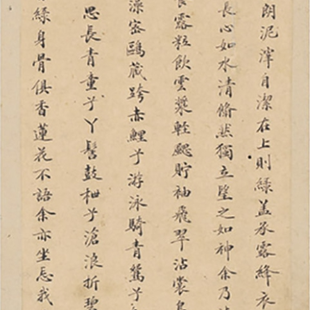 朗泥滓自潔在上則綠蓋承露絳衣
長心如水清翛然獨立望之如神余乃
長露粒飲雲漿輕颸貯袖飛翠沾裳
藻密鷗藏跨赤鯉乎游泳騎青鸞乎
思長青童子丫髻鼓枻乎滄浪折碧
綠身骨俱香蓮花不語余亦坐忘我